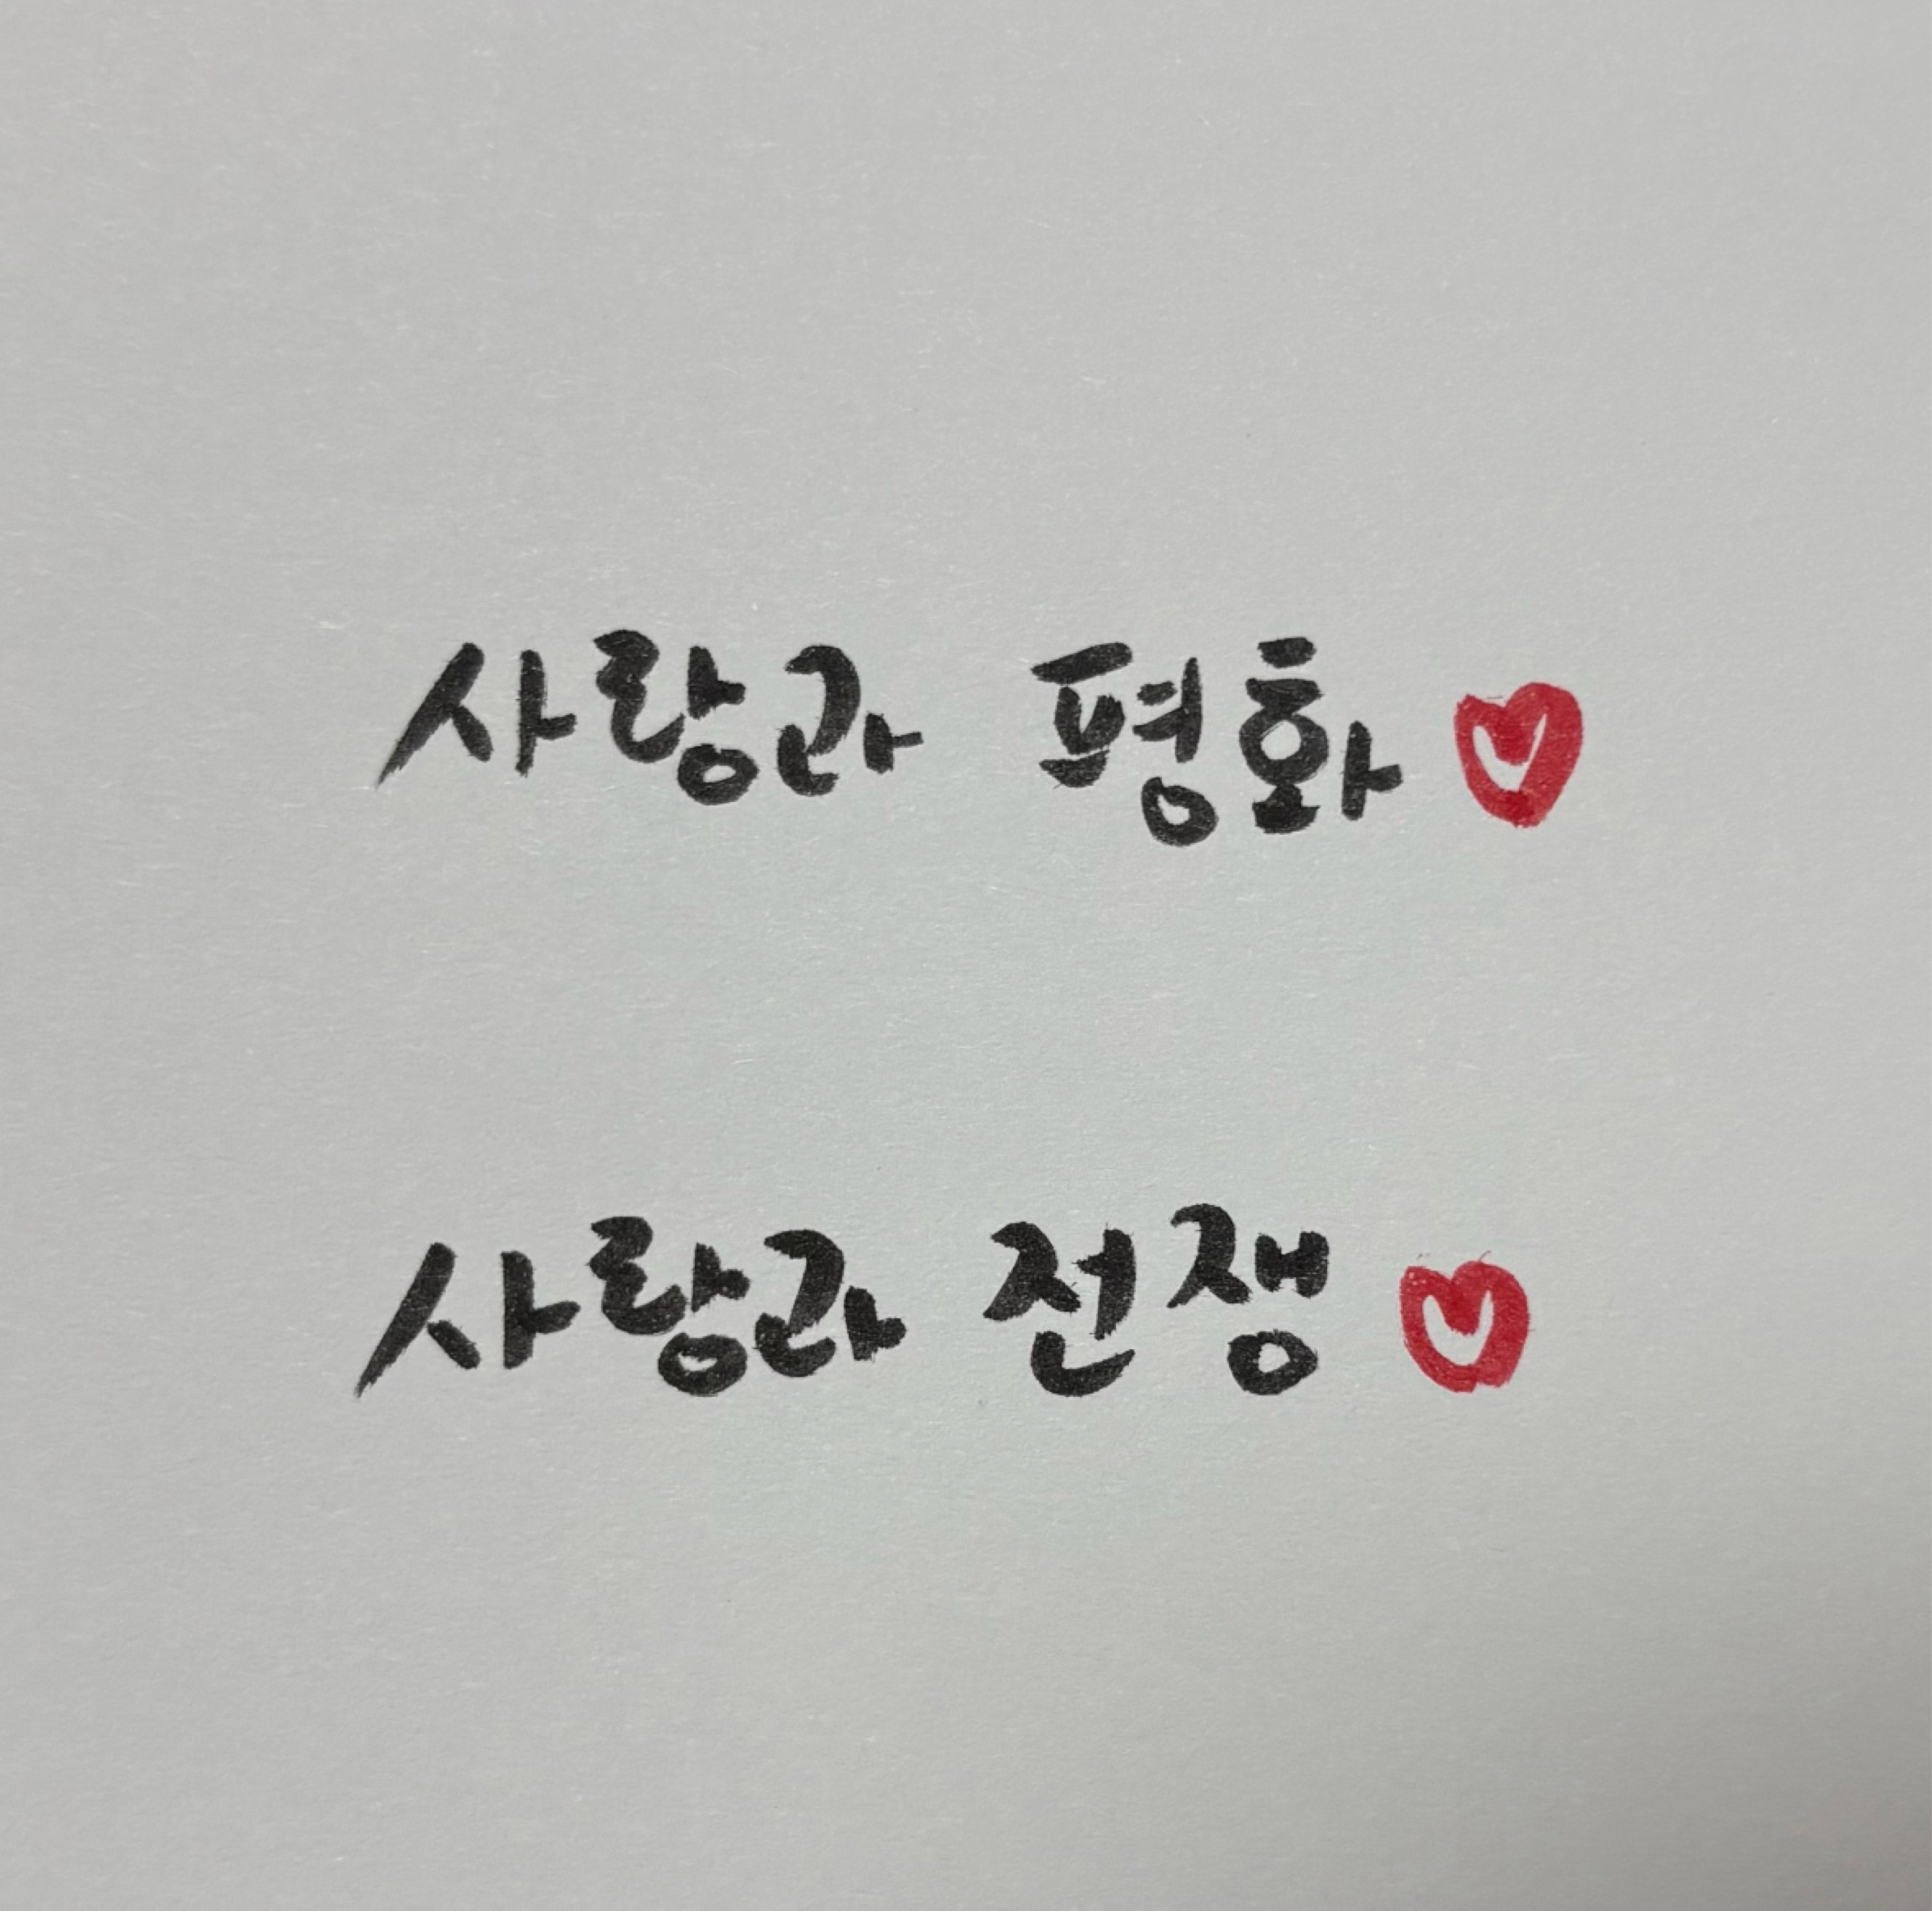 사랑과 평화♥
사랑과 전쟁♥